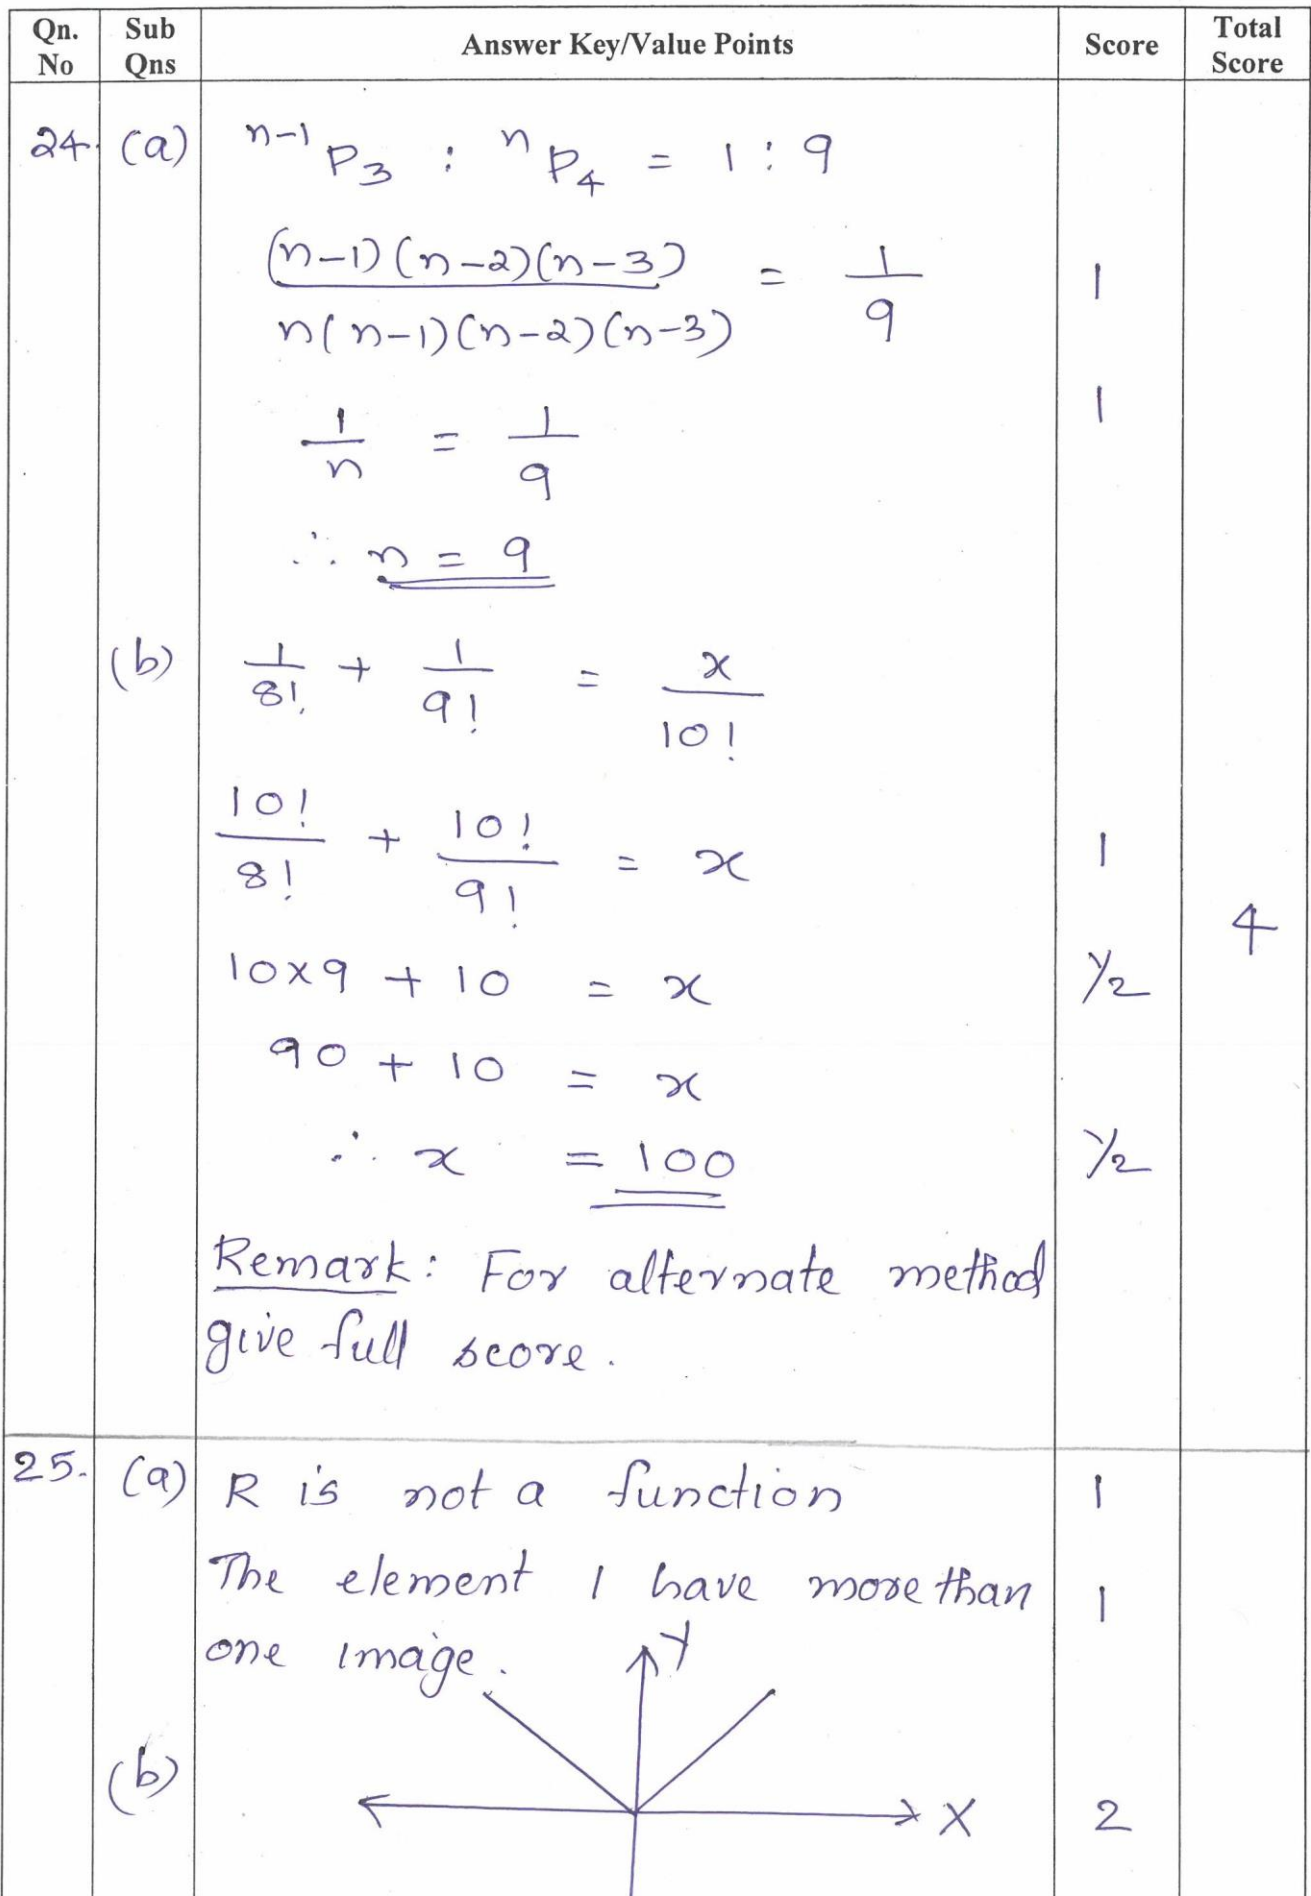 Qn. No Sub Qns Answer Key/Value Points Score Total Score
24. (a) n-1P3 : nP4 = 1 : 9
(n-1)(n-2)(n-3) / n(n-1)(n-2)(n-3) = 1/9 1
1/n = 1/9 1
∴ n = 9
(b) 1/8! + 1/9! = x/10!
10!/8! + 10!/9! = x 1
4
10×9 + 10 = x 1/2
90 + 10 = x
∴ x = 100 1/2
Remark: For alternate method
give full score.
25. (a) R is not a function 1
The element 1 have more than 1
one image.
Y
(b)
X 2